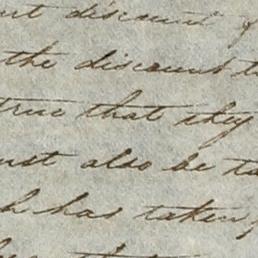 discount
the discount
true that they
also be
has taken,